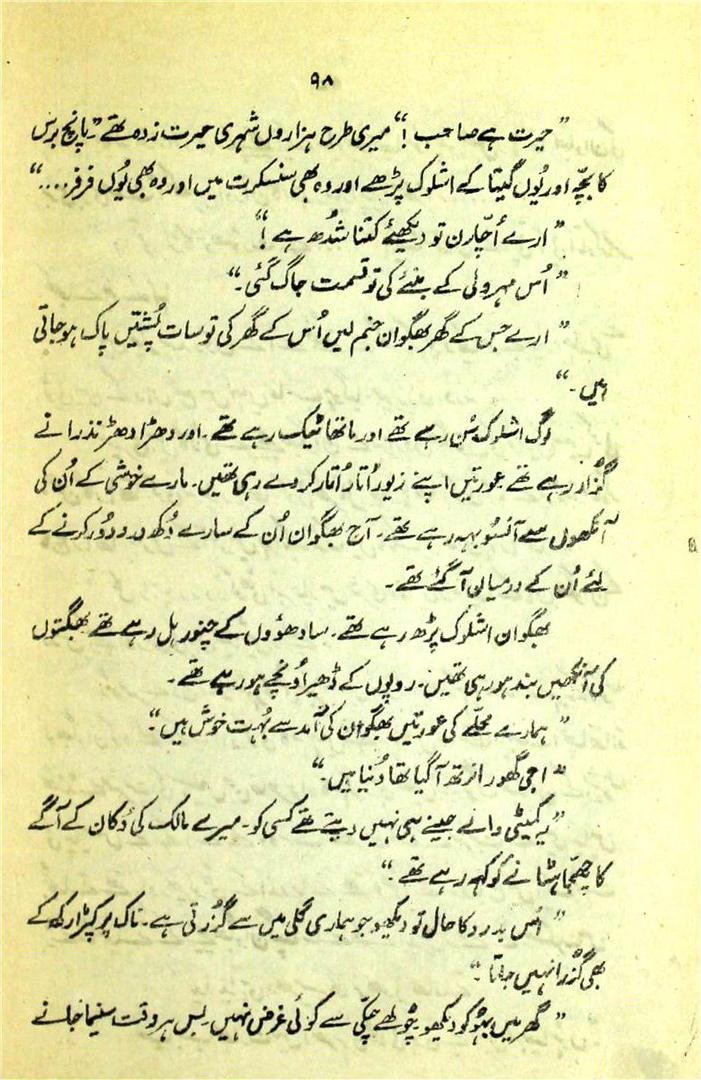 ۹۸
”حیرت ہے صاحب !“ میری طرح ہزاروں شہری حیرت زدہ تھے ”پانچ برس
کا بچّہ اور یُوں گیتا کے اشلوک پڑھے اور وہ بھی سنسکرت میں اور وہ بھی یُوں فرفر....“
”ارے اُچّارن تو دیکھئے کتنا شُدھ ہے !“
”اُس مہرولی کے بنئے کی تو قسمت جاگ گئی۔“
”ارے جس کے گھر بھگوان جنم لیں اُس کے گھر کی تو سات پُشتیں پاک ہو جاتی
ہیں۔“
لوگ اشلوک سُن رہے تھے اور ماتھا ٹیک رہے تھے۔ اور دھڑا دھڑ نذرانے
گُزار رہے تھے عورتیں اپنے زیور اُتار اُتار کر دے رہی تھیں۔ مارے خوشی کے اُن کی
آنکھوں سے آنسُو بہہ رہے تھے۔ آج بھگوان اُن کے سارے دُکھ درد دُور کرنے کے
لئے اُن کے درمیان آ گئے تھے۔
بھگوان اشلوک پڑھ رہے تھے۔ سادھوؤں کے چنور ہل رہے تھے بھگتوں
کی آنکھیں بند ہو رہی تھیں۔ روپوں کے ڈھیر اُونچے ہو رہے تھے۔
”ہمارے محلّے کی عورتیں بھگوان کی آمد سے بُہت خوش ہیں“۔
”اجی گھور انرتھ آ گیا تھا دُنیا میں۔“
”یہ کمیٹی والے جینے ہی نہیں دیتے تھے کسی کو۔ میرے مالک کی دُکان کے آگے
کا چھجّا ہٹانے کو کہہ رہے تھے۔“
”اُس بدررو کا حال تو دیکھو جو ہماری گلی میں سے گُزرتی ہے۔ ناک پر کپڑا رکھ کے
بھی گُزرا نہیں جاتا۔“
”گھر میں بہُو کو دیکھو چُولھے چکّی سے کوئی غرض نہیں۔ بس ہر وقت سنیما جانے